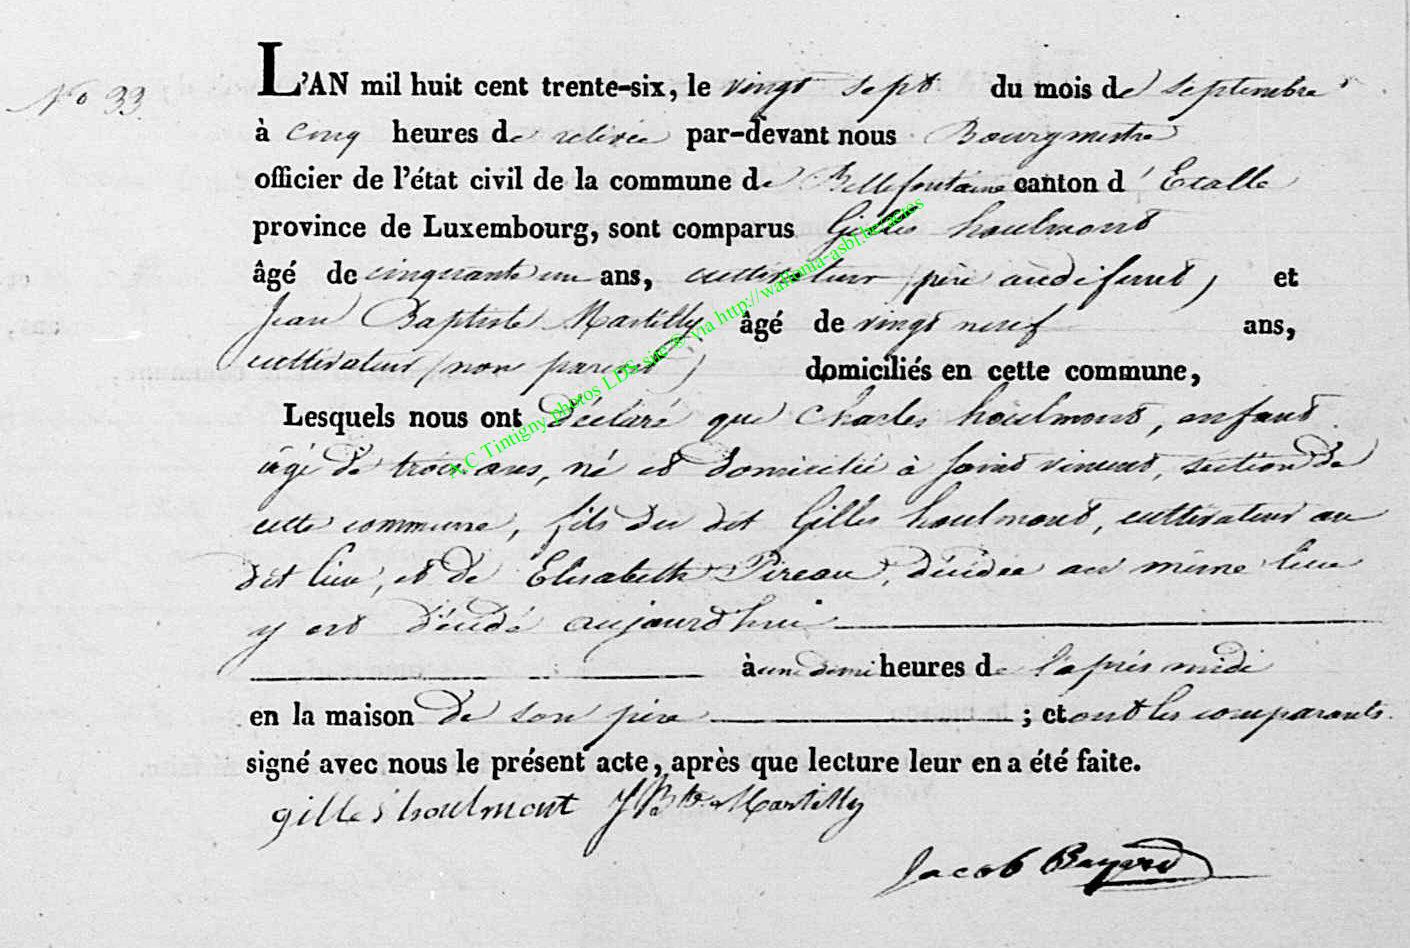 No 33.
L'AN mil huit cent trente-six, le vingt sept du mois de septembre
à cinq heures de relivée par-devant nous Bourgmestre
officier de l'état civil de la commune de Bellefontaine canton d'Etalle
province de Luxembourg, sont comparus Gilles houlmont
âgé de cinquante un ans, cultivateur (père au défunt) et
Jean Baptiste Martilly âgé de vingt neuf ans,
cultivateur (non parent) domiciliés en cette commune,
Lesquels nous ont déclaré que Charles houlmont, enfant
âgé de trois ans, né et domicilié à saint vincent, section de
cette commune, fils du dit Gilles houlmont, cultivateur au
dit lieu, et de Elisabeth Pireau, décédée au même lieu
y est décédé aujourd'hui
à une demi heures de l'après midi
en la maison de son père ; et ont les comparants
signé avec nous le présent acte, après que lecture leur en a été faite.
gilles houlmont J Bte Martilly
Jacob Bayard
A.C Tintigny photos LDS site © via http://wallonia-asbl.be/actes